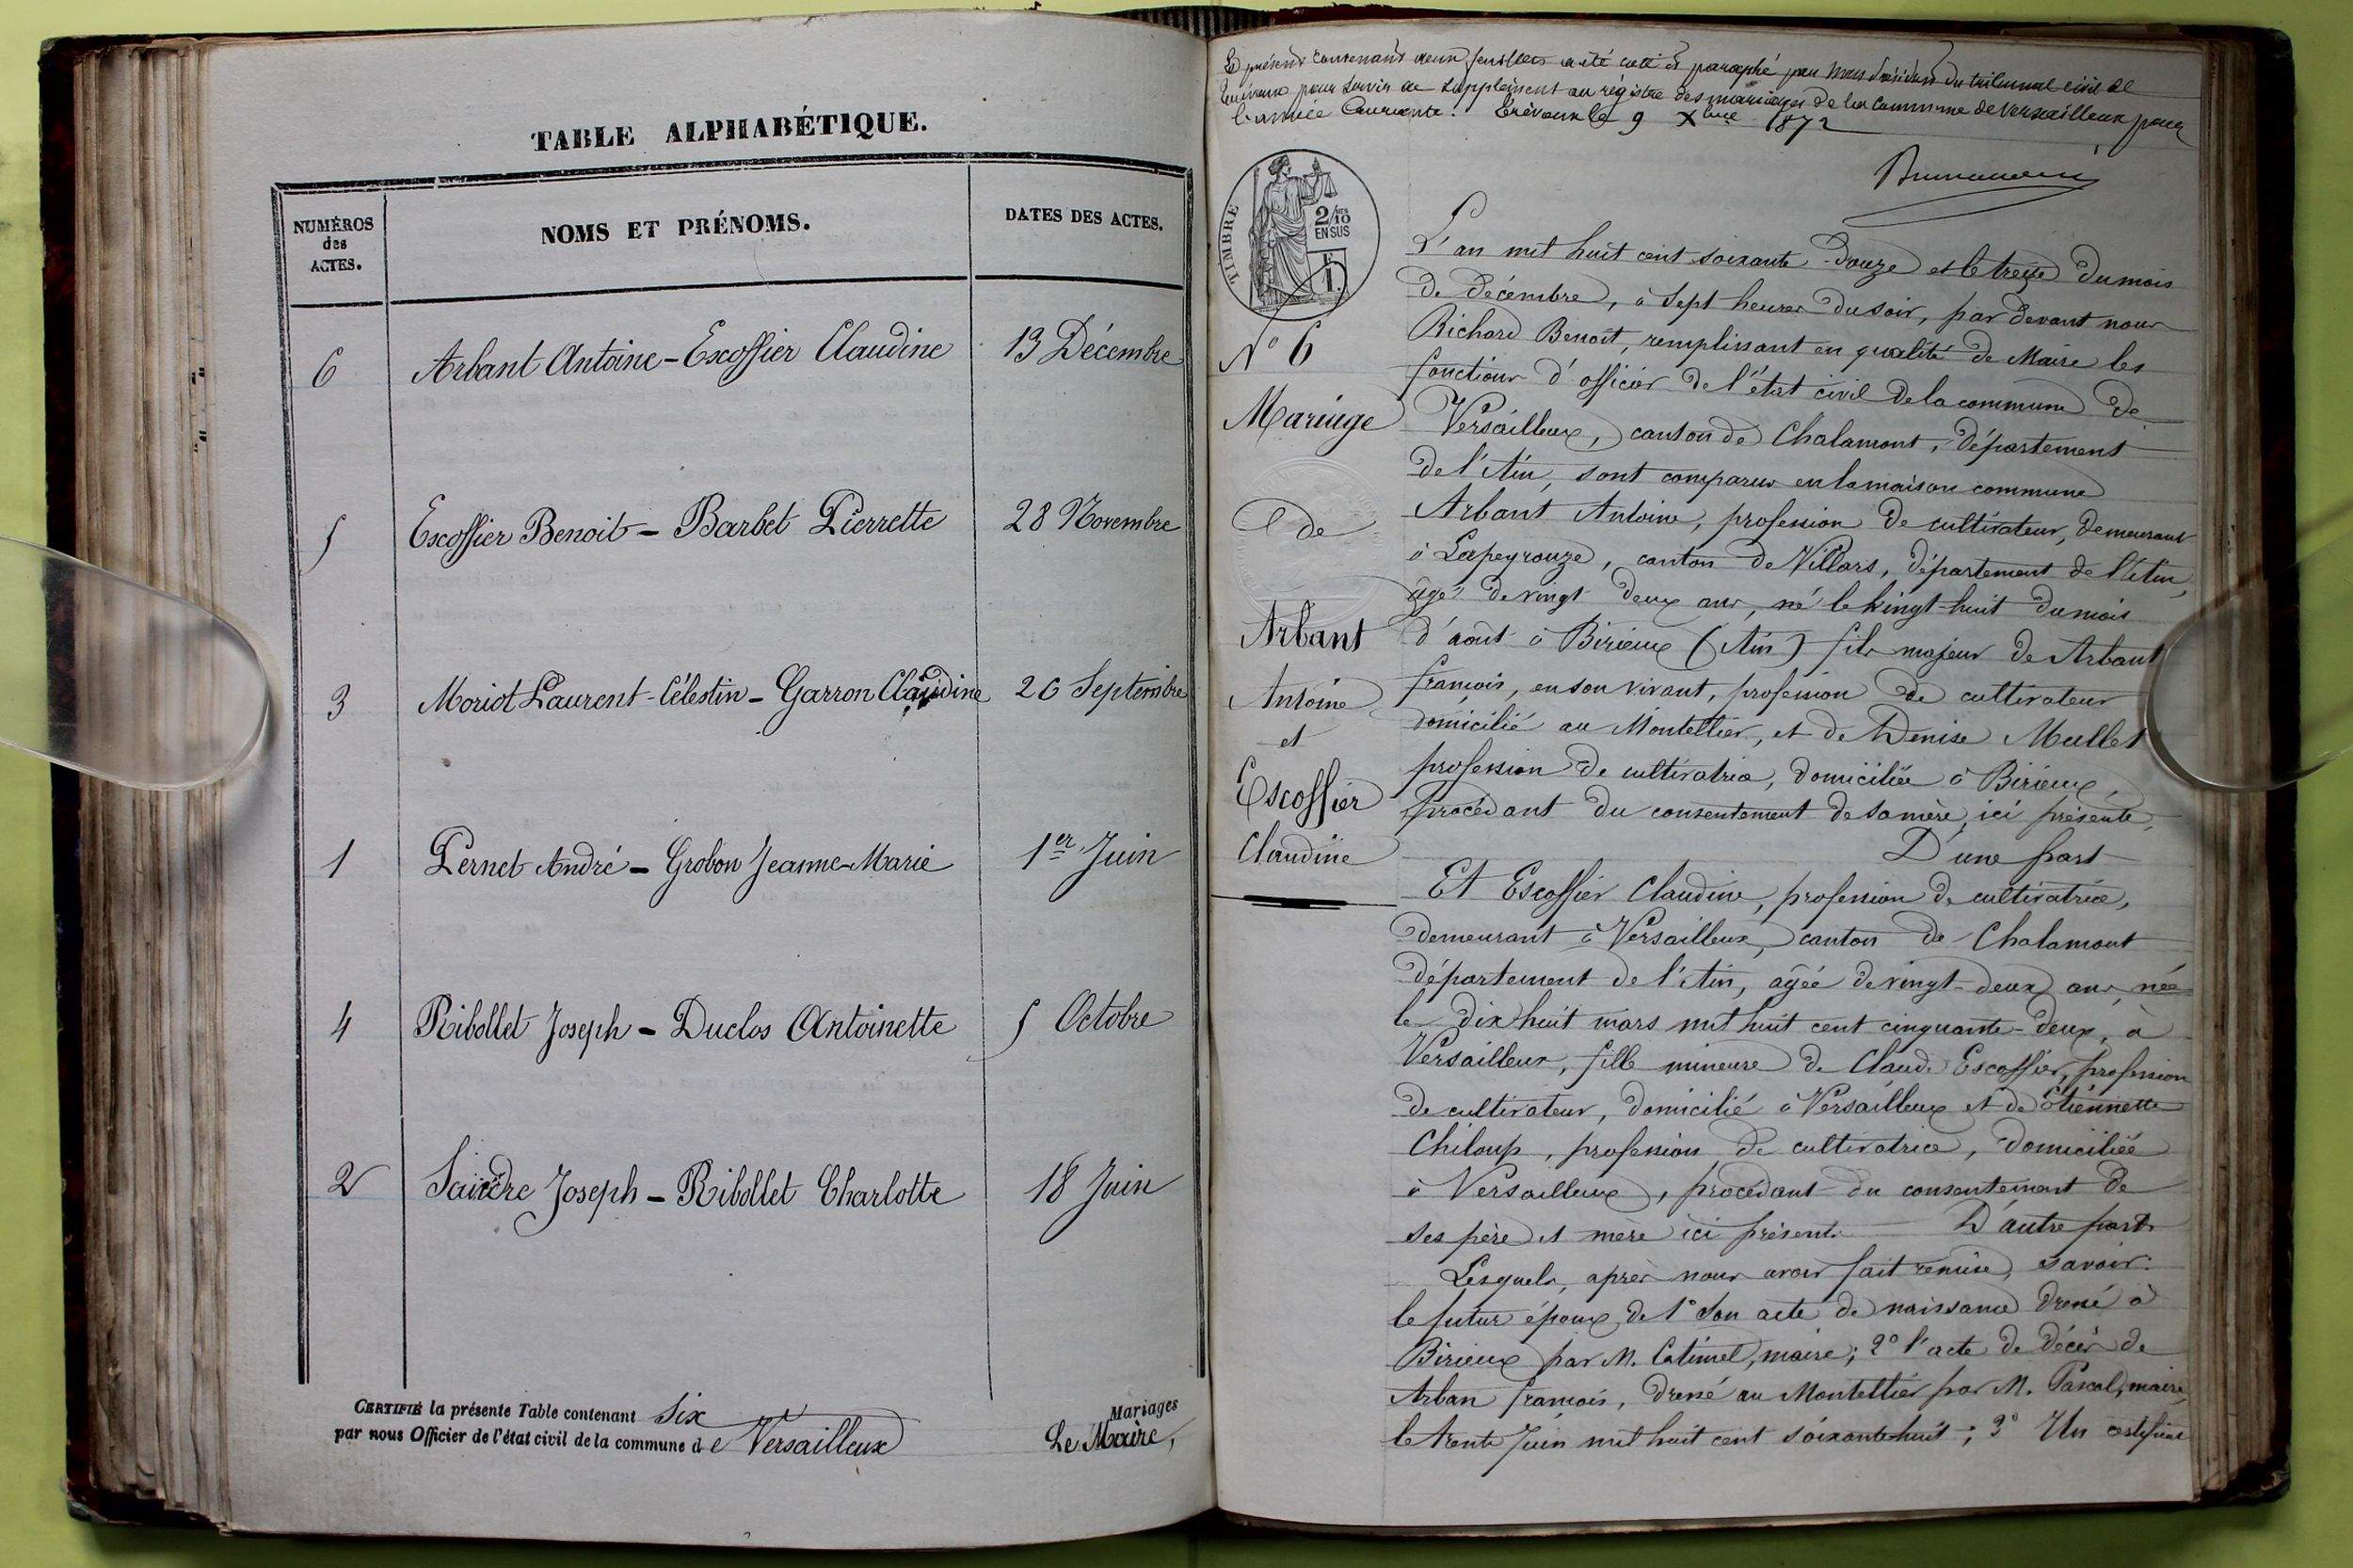 TABLE ALPHABÉTIQUE.
NUMÉROS des ACTES.
NOMS ET PRÉNOMS.
DATES DES ACTES.
6 Arbant Antoine - Escoffier Claudine 13 Décembre
5 Escoffier Benoit - Barbet Pierrette 28 Novembre
3 Moriot Laurent-Célestin - Garron Claudine 26 Septembre
1 Pernet André - Grobon Jeanne-Marie 1er Juin
4 Ribollet Joseph - Duclos Antoinette 5 Octobre
2 Saindre Joseph - Ribollet Charlotte 18 Juin
CERTIFIÉ la présente Table contenant Six Mariages
par nous Officier de l'état civil de la commune de Versailleux Le Maire,
Le présent contenant deux feuillets a été coté et paraphé par nous Président du tribunal civil de
Trévoux pour servir de supplément au régistre des mariages de la commune de Versailleux pour
l'année Courante. Trévoux le 9 Xbre 1872
TIMBRE
2/10 EN SUS
F 1.
N° 6
Mariage
de
Arbant
Antoine
et
Escoffier
Claudine
L'an mil huit cent soixante-douze et le treize du mois
de décembre, à sept heures du soir, par devant nous
Richard Benoît, remplissant en qualité de Maire les
fonctions d'officier de l'état civil de la commune de
Versailleux, canton de Chalamont, département
de l'Ain, sont comparus en la maison commune
Arbant Antoine, profession de cultivateur, demeurant
à Lapeyrouze, canton de Villars, département de l'Ain,
âgé de vingt deux ans, né le vingt-huit du mois
d'août à Birieux (Ain) fils majeur de Arbant
françois, en son vivant, profession de cultivateur
domicilié au Montellier, et de Denise Mullet
profession de cultivatrice, domiciliée à Birieux,
procédant du consentement de sa mère, ici présente,
D'une part
Et Escoffier Claudine, profession de cultivatrice,
demeurant à Versailleux, canton de Chalamont
département de l'Ain, agée de vingt-deux ans, née
le dix huit mars mil huit cent cinquante-deux, à
Versailleux, fille mineure de Claude Escoffier, profession
de cultivateur, domicilié à Versailleux et de Etiennette
Chiloup, profession de cultivatrice, domiciliée
à Versailleux, procédant du consentement de
ses père et mère ici présents D'autre part
Lesquels, après nous avoir fait remise, savoir:
le futur époux, de 1° son acte de naissance dressé à
Birieux par M. Catimel, maire; 2° l'acte de décès de
Arban françois, dressé au Montellier par M. Pascal, maire,
le trente Juin mil huit cent soixante-huit; 3° Un certificat